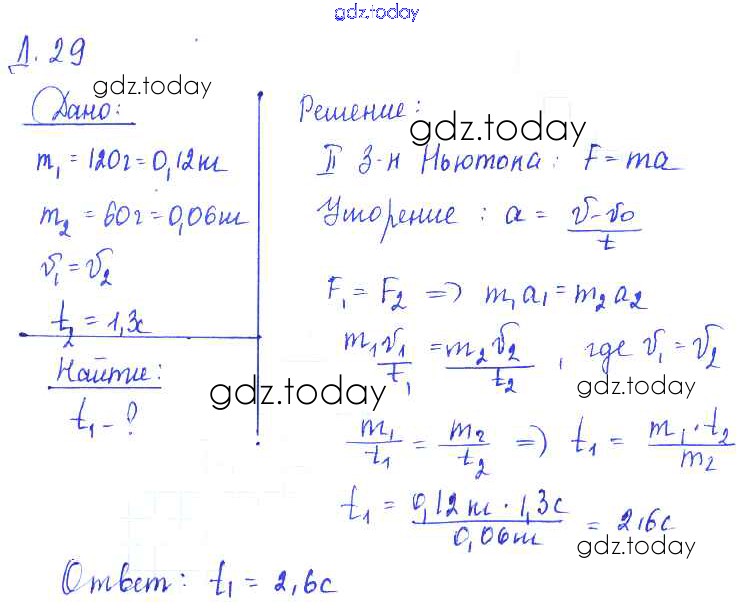 gdz.today
Д. 29
gdz.today
Дано:
m₁ = 120г = 0,12кг
m₂ = 60г = 0,06кг
v₁ = v₂
t₂ = 1,3с
Найти:
t₁ - ?
Решение:
gdz.today
II З-н Ньютона: F = ma
Ускорение: a = (v - v₀)/t
F₁ = F₂ => m₁a₁ = m₂a₂
m₁v₁/t₁ = m₂v₂/t₂, где v₁ = v₂
gdz.today
gdz.today
m₁/t₁ = m₂/t₂ => t₁ = m₁·t₂/m₂
t₁ = 0,12кг · 1,3с/0,06кг = 2,6с
gdz.today
Ответ: t₁ = 2,6с